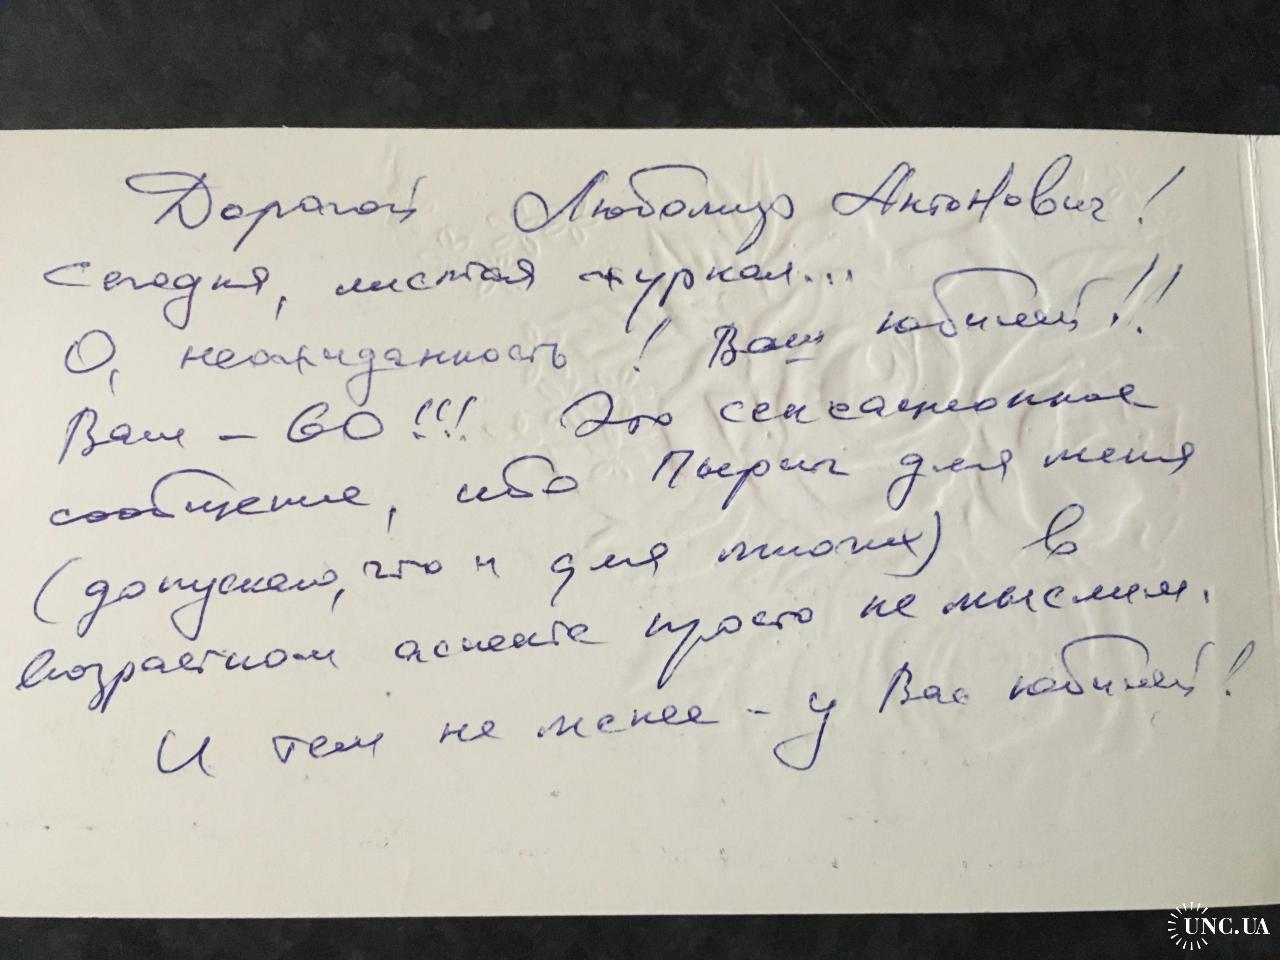 Дорогой Любомир Антонович!
Сегодня, листая журнал...
О, неожиданность! Ваш юбилей!!
Вам – 60!!! Это сенсационное
сообщение, ибо Пырич для меня
(допускаю, что и для многих) в
возрастном аспекте просто не мыслим.
И тем не менее – у Вас юбилей!
UNC.UA